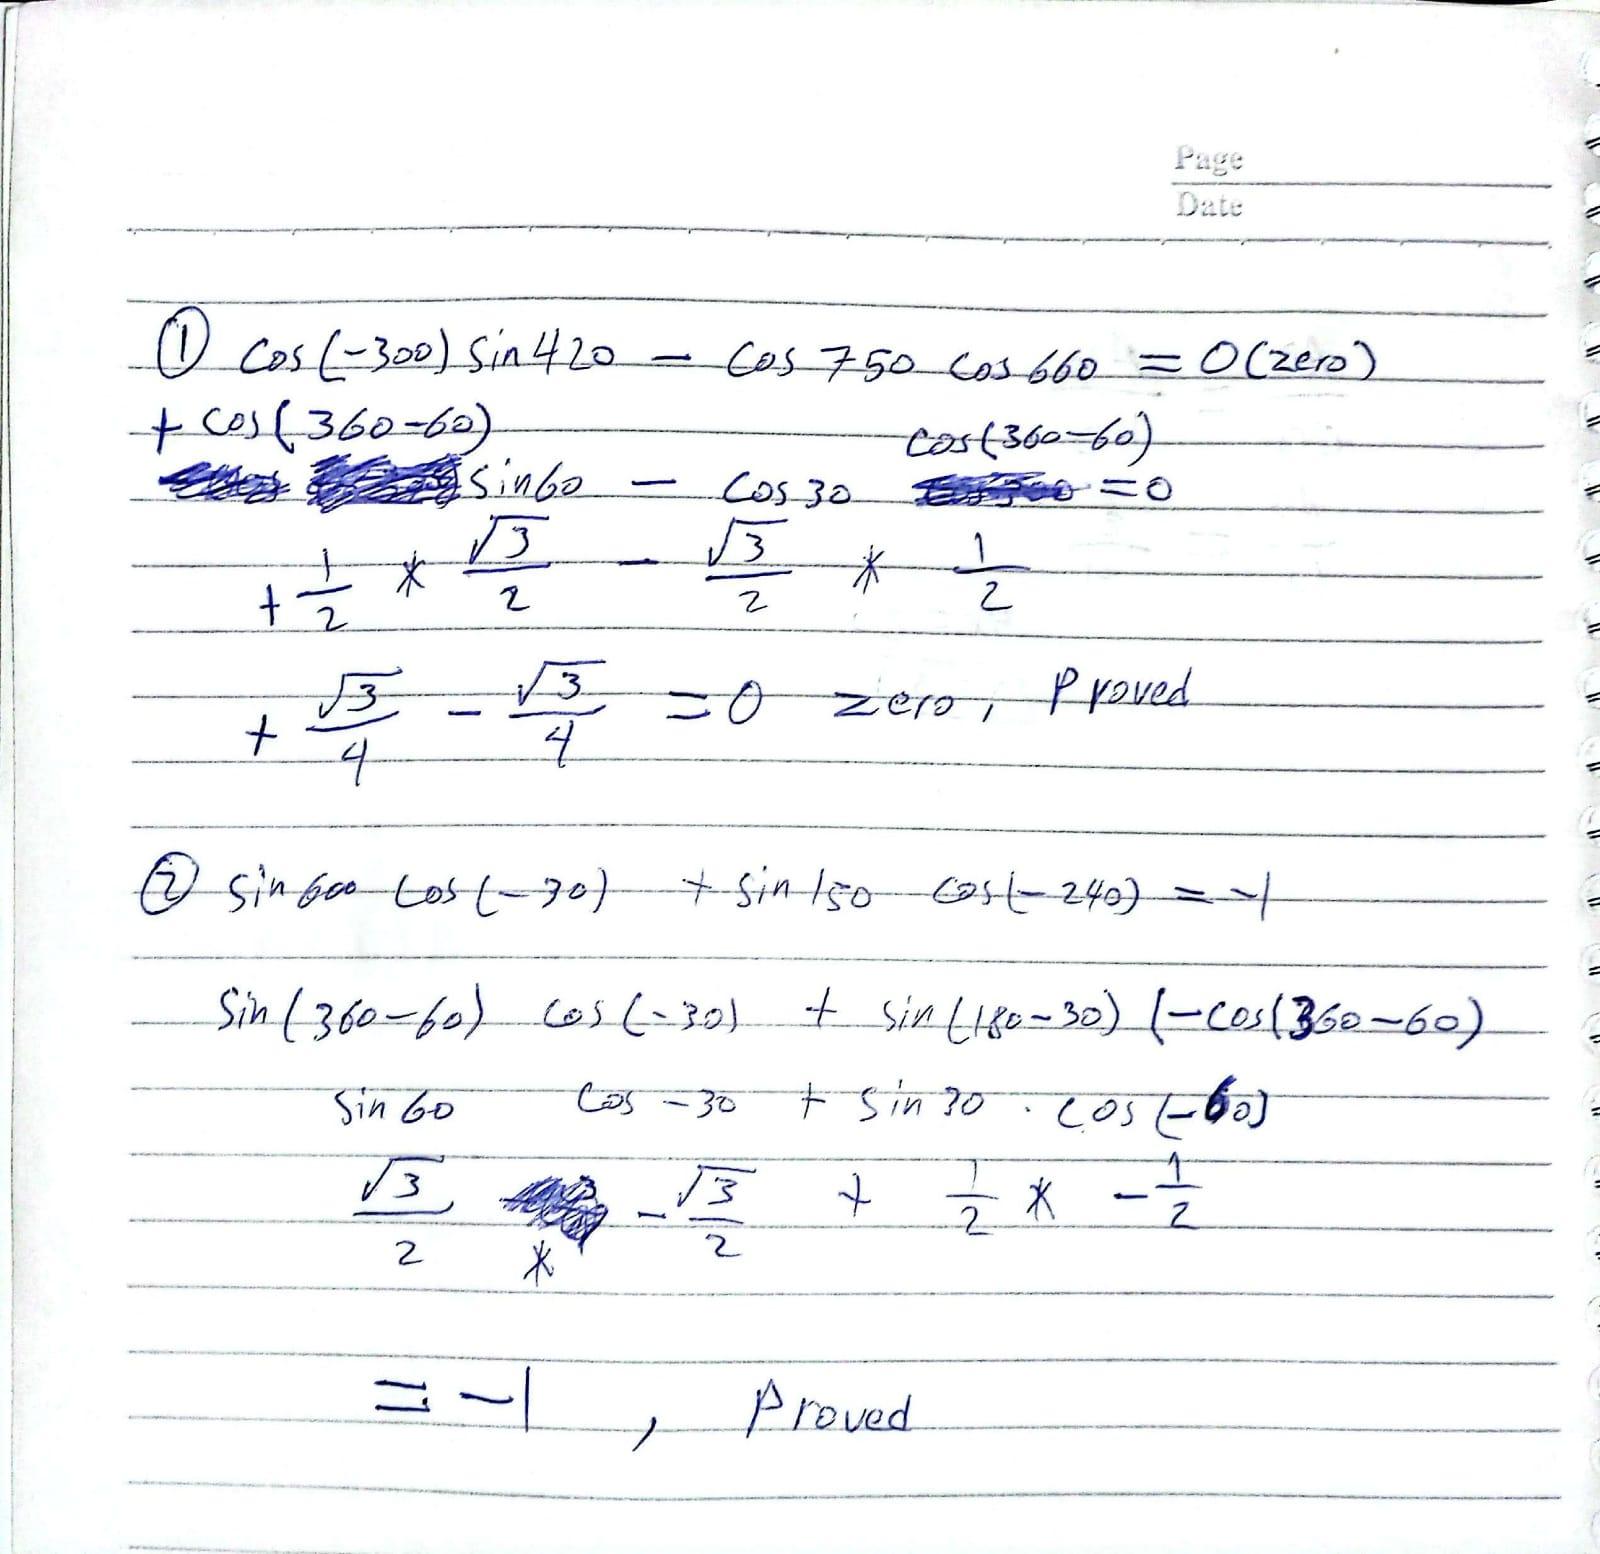 Page
Date
① cos(-300) sin 420 - cos 750 cos 660 = 0 (zero)
+ cos(360-60) cos(360-60)
sin60 - cos 30 =0
+ 1/2 * √3/2 - √3/2 * 1/2
+ √3/4 - √3/4 = 0 zero, Proved
② sin 600 cos(-30) + sin 150 cos(-240) = -1
sin(360-60) cos(-30) + sin(180-30) (-cos(360-60)
sin 60 cos -30 + sin 30 . cos(-60)
√3/2 * -√3/2 + 1/2 * -1/2
= -1 , Proved